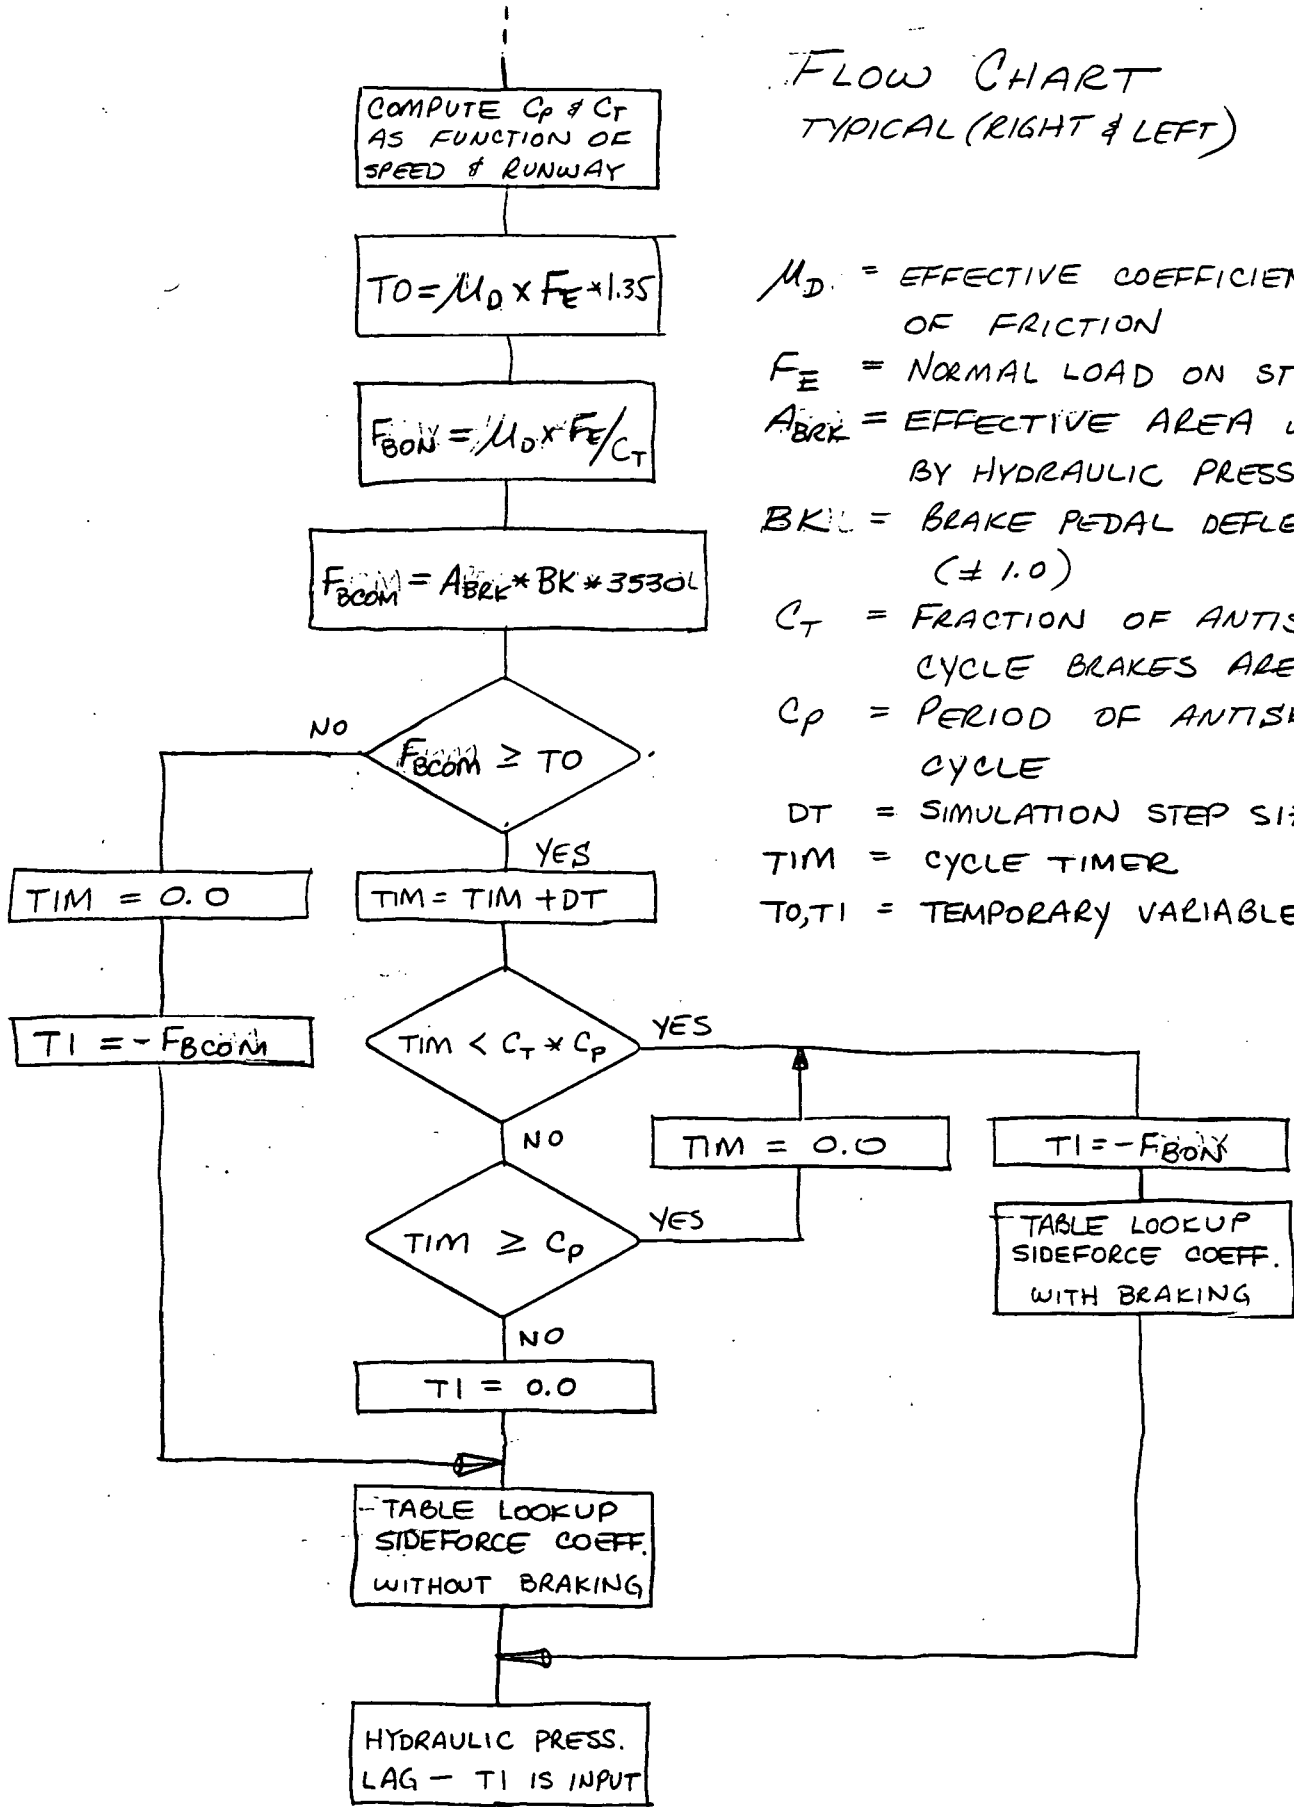 FLOW CHART
TYPICAL (RIGHT & LEFT)
COMPUTE Cp & CT
AS FUNCTION OF
SPEED & RUNWAY
TO = μD x FE * 1.35
FBON = μD x FE/CT
FBCOM = ABRK * BK * 3530
FBCOM ≥ TO
NO
YES
TIM = 0.0
TIM = TIM + DT
T1 = - FBCOM
TIM < CT * Cp
YES
NO
TIM = 0.0
T1 = - FBON
TIM ≥ Cp
YES
TABLE LOOKUP
SIDEFORCE COEFF.
WITH BRAKING
NO
T1 = 0.0
TABLE LOOKUP
SIDEFORCE COEFF.
WITHOUT BRAKING
HYDRAULIC PRESS.
LAG - T1 IS INPUT
μD = EFFECTIVE
OF FRICTION
FE = NORMAL LOAD ON
ABRK = EFFECTIVE AREA
BY HYDRAULIC PRESS
BK = BRAKE PEDAL
(± 1.0)
CT = FRACTION OF
CYCLE BRAKES ARE
Cp = PERIOD OF
CYCLE
DT = SIMULATION STEP
TIM = CYCLE TIMER
TO, T1 = TEMPORARY VARIABLE